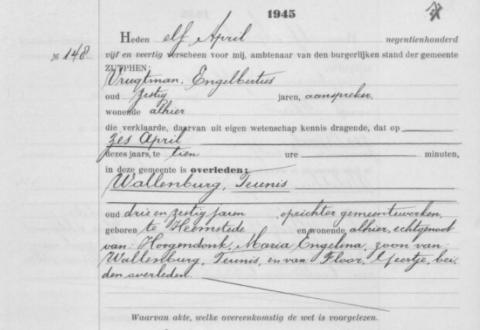 1945
Heden elf April negentienhonderd
№ 148 vijf en veertig verscheen voor mij, ambtenaar van den burgerlijken stand der gemeente
ZUTPHEN:
Vrugtman, Engelbertus
oud zestig jaren, aanspreker
wonende alhier
die verklaarde, daarvan uit eigen wetenschap kennis dragende, dat op
zes April
dezes jaars, te tien ure minuten,
in deze gemeente is overleden:
Wallenburg, Teunis
oud drie en zestig jaren opzichter gemeentewerken,
geboren te Heemstede en wonende alhier, echtgenoot
van: Hoogendonk, Maria Engelina, zoon van:
Wallenburg, Teunis, en van Floor, Meertje, bei-
den overleden.
Waarvan akte, welke overeenkomstig de wet is voorgelezen.